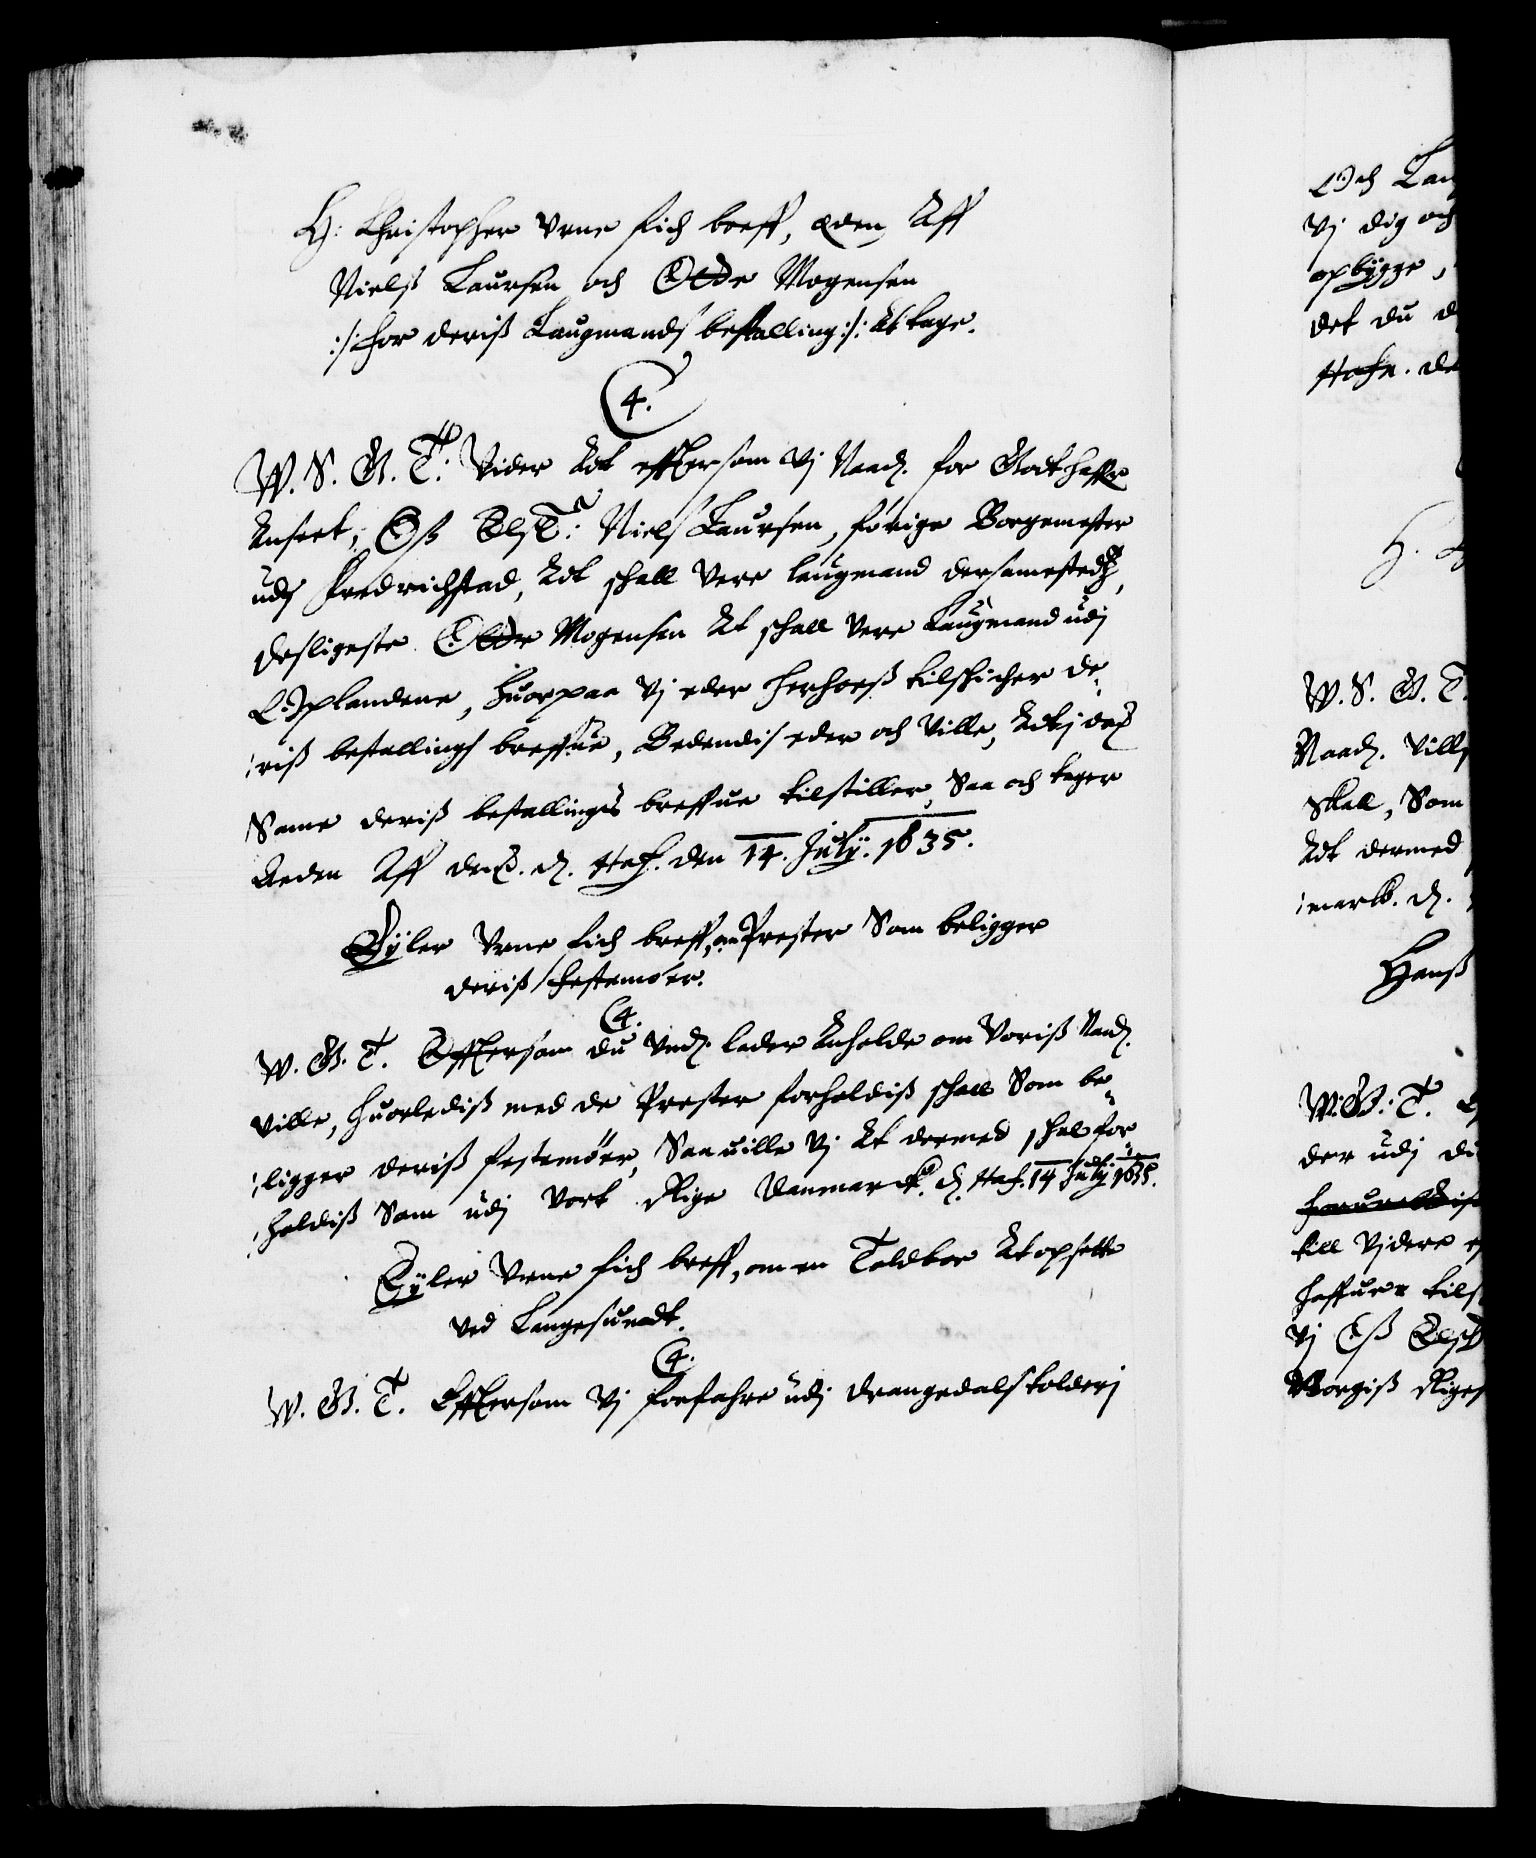 H: Christopher Vrne fich breff, Eden Aff
Nielß Laursen och Olde Mogensen
:/ for deriß Laugmands bestalling :/: At tage.
4.
W. S. G. T. Vider Adt effttersom Vj Naad. for Godt haffr
Anseet, Oß Elsk: Niels Laursen, forige Borgemester
udj Fredrichstad, Adt schall Vere laugmand dersamestedtz,
desligeste Olde Mogensen At schall Vere Laugmand udj
Oplandene, huorpaa Vj eder herhoeß tilschicher de-
riß bestallings breffue, Bedendis eder och Ville, Adt j dem
Same deriß bestallings breffue tilstiller, Saa och tager
Aeden Aff dem. d. Haf. den 14. July. 1635.
Eyler Vrne fich breff, om Prester Som beligger
deriß festemøer.
4.
W. G. T. Effttersom du Vnd. lader Anholde om Voriß Naad.
Ville, huorlediß med de Prester forholdiß schall Som be-
ligger deriß festemøer, Saa ville Vj At dermed schal for-
holdiß Som udj Vort Rige Danmarck. d. Haf. 14 July 1635.
Eyler Vrne fich breff, om en Toldboe At opsette
Ved Langesundt.
4.
W. G. T. Effttersom Vj forfahre udj Drangedals tolderj
Och Lau
Vj dig och
opbygge,
det du d
Hafn. de
H.
W. S. G. T.
Naad. Vill
Skall, Som
Adt dermed
mark. d.
Hanß
W. G. T.
der udj du
till Vjdere
haffuer tils
Vj Oß Elsk
Norgiß Riges